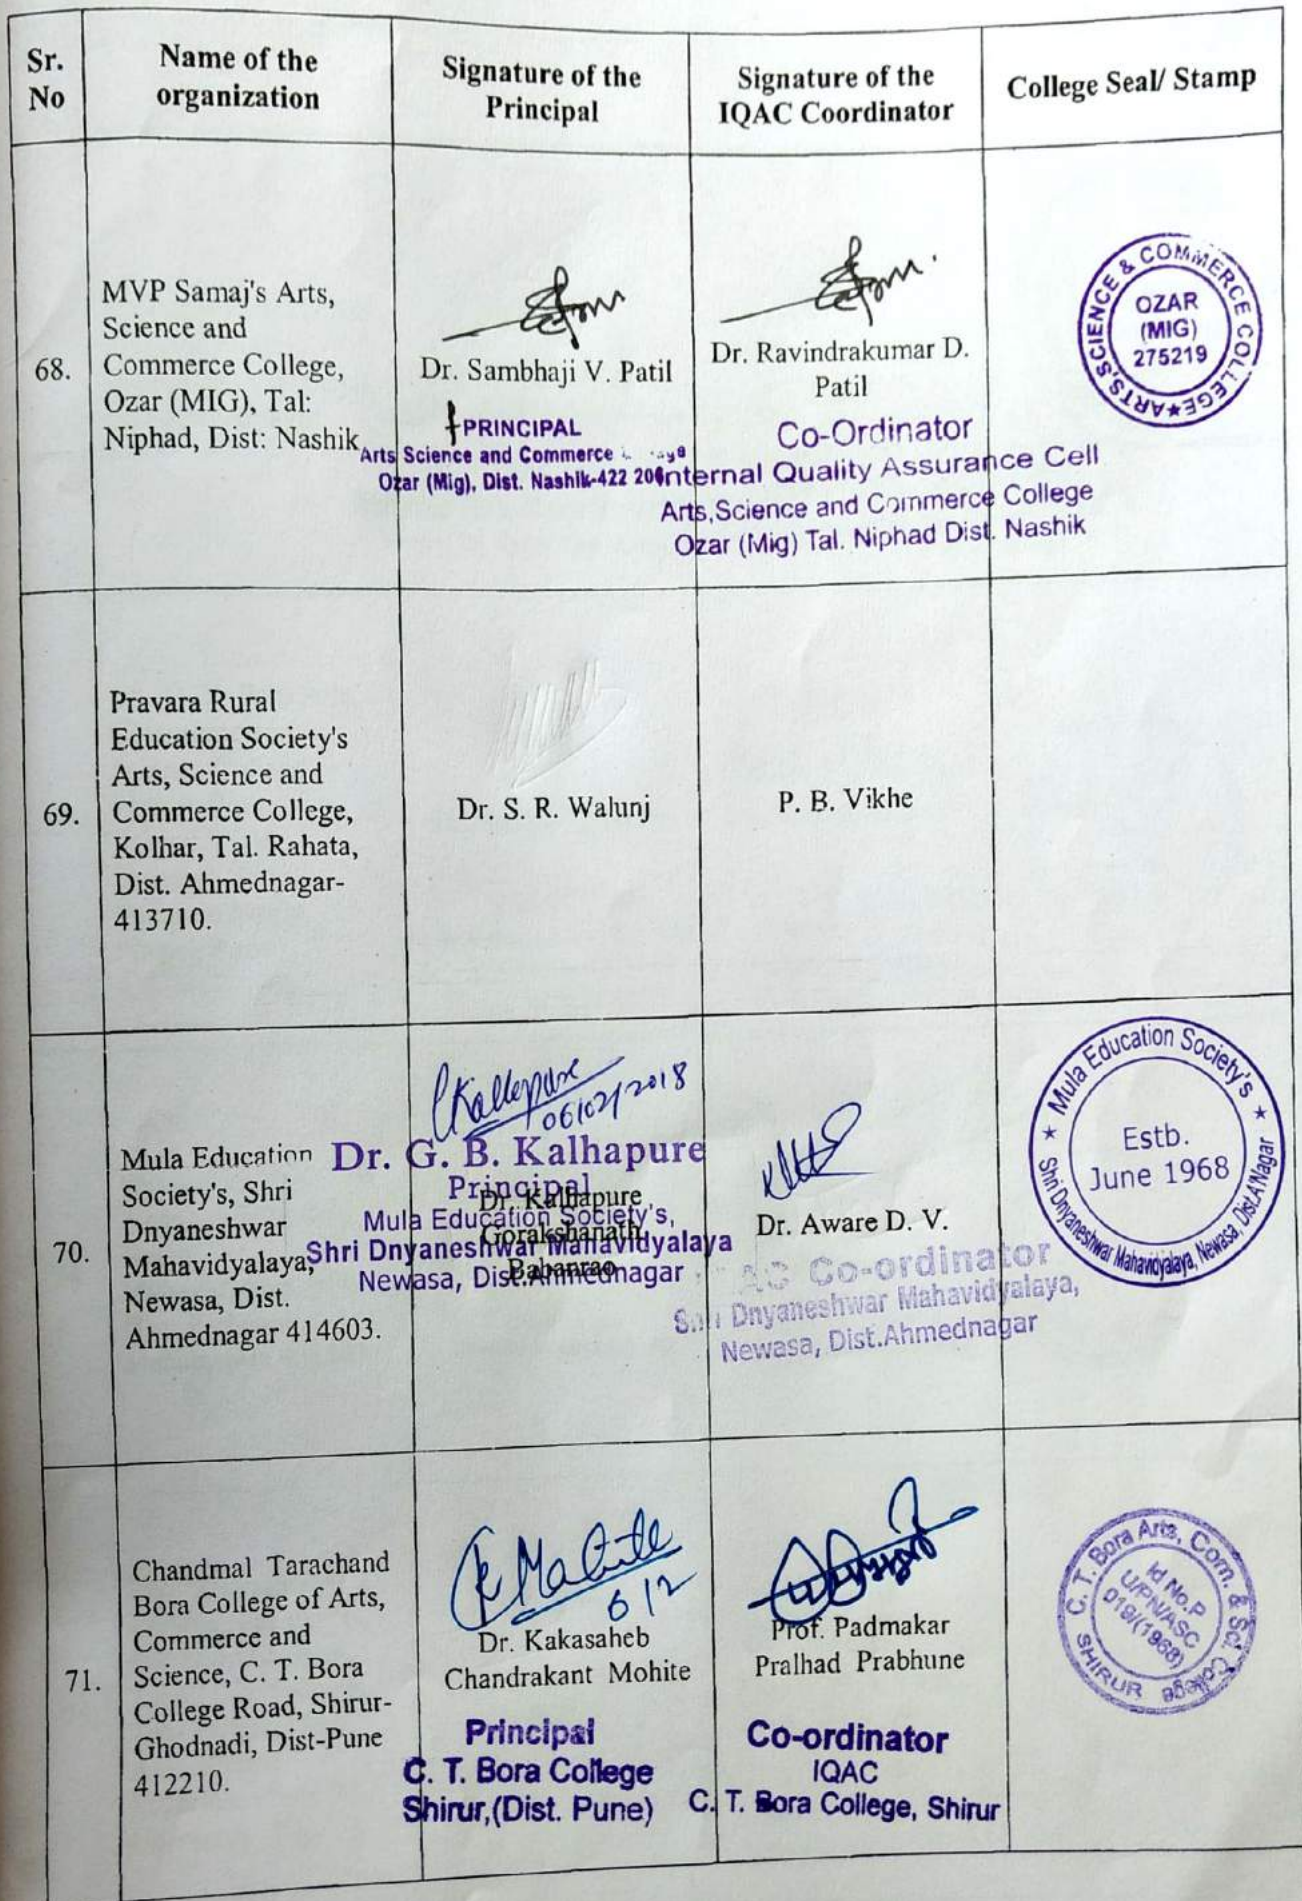 Sr.
No
Name of the
organization
Signature of the
Principal
Signature of the
IQAC Coordinator
College Seal/ Stamp
68.
MVP Samaj's Arts,
Science and
Commerce College,
Ozar (MIG), Tal:
Niphad, Dist: Nashik
Dr. Sambhaji V. Patil
PRINCIPAL
Arts Science and Commerce
Ozar (Mig), Dist. Nashik-422 206
Dr. Ravindrakumar D.
Patil
Co-Ordinator
Internal Quality Assurance Cell
Arts,Science and Commerce College
Ozar (Mig) Tal. Niphad Dist. Nashik
ARTS,SCIENCE & COMMERCE COLLEGE
OZAR
(MIG)
275219
69.
Pravara Rural
Education Society's
Arts, Science and
Commerce College,
Kolhar, Tal. Rahata,
Dist. Ahmednagar-
413710.
Dr. S. R. Walunj
P. B. Vikhe
70.
Mula Education
Society's, Shri
Dnyaneshwar
Mahavidyalaya,
Newasa, Dist.
Ahmednagar 414603.
Kallepure
06/02/2018
Dr. G. B. Kalhapure
Principal
Mula Education Society's,
Shri Dnyaneshwar Mahavidyalaya
Newasa, Dist.Ahmednagar
Dr. Kalhapure
Gorakshanath
Babanrao
Dr. Aware D. V.
Co-ordinator
Shri Dnyaneshwar Mahavidyalaya,
Newasa, Dist.Ahmednagar
Mula Education Society's
Shri Dnyaneshwar Mahavidyalaya, Newasa, Dist.A'Nagar
Estb.
June 1968
71.
Chandmal Tarachand
Bora College of Arts,
Commerce and
Science, C. T. Bora
College Road, Shirur-
Ghodnadi, Dist-Pune
412210.
Mohite
6/2
Dr. Kakasaheb
Chandrakant Mohite
Principal
C. T. Bora College
Shirur,(Dist. Pune)
Prof. Padmakar
Pralhad Prabhune
Co-ordinator
IQAC
C. T. Bora College, Shirur
C. T. Bora Arts, Com. & Sci. College
SHIRUR
Id No.P
U/PN/ASC
019/(1968)